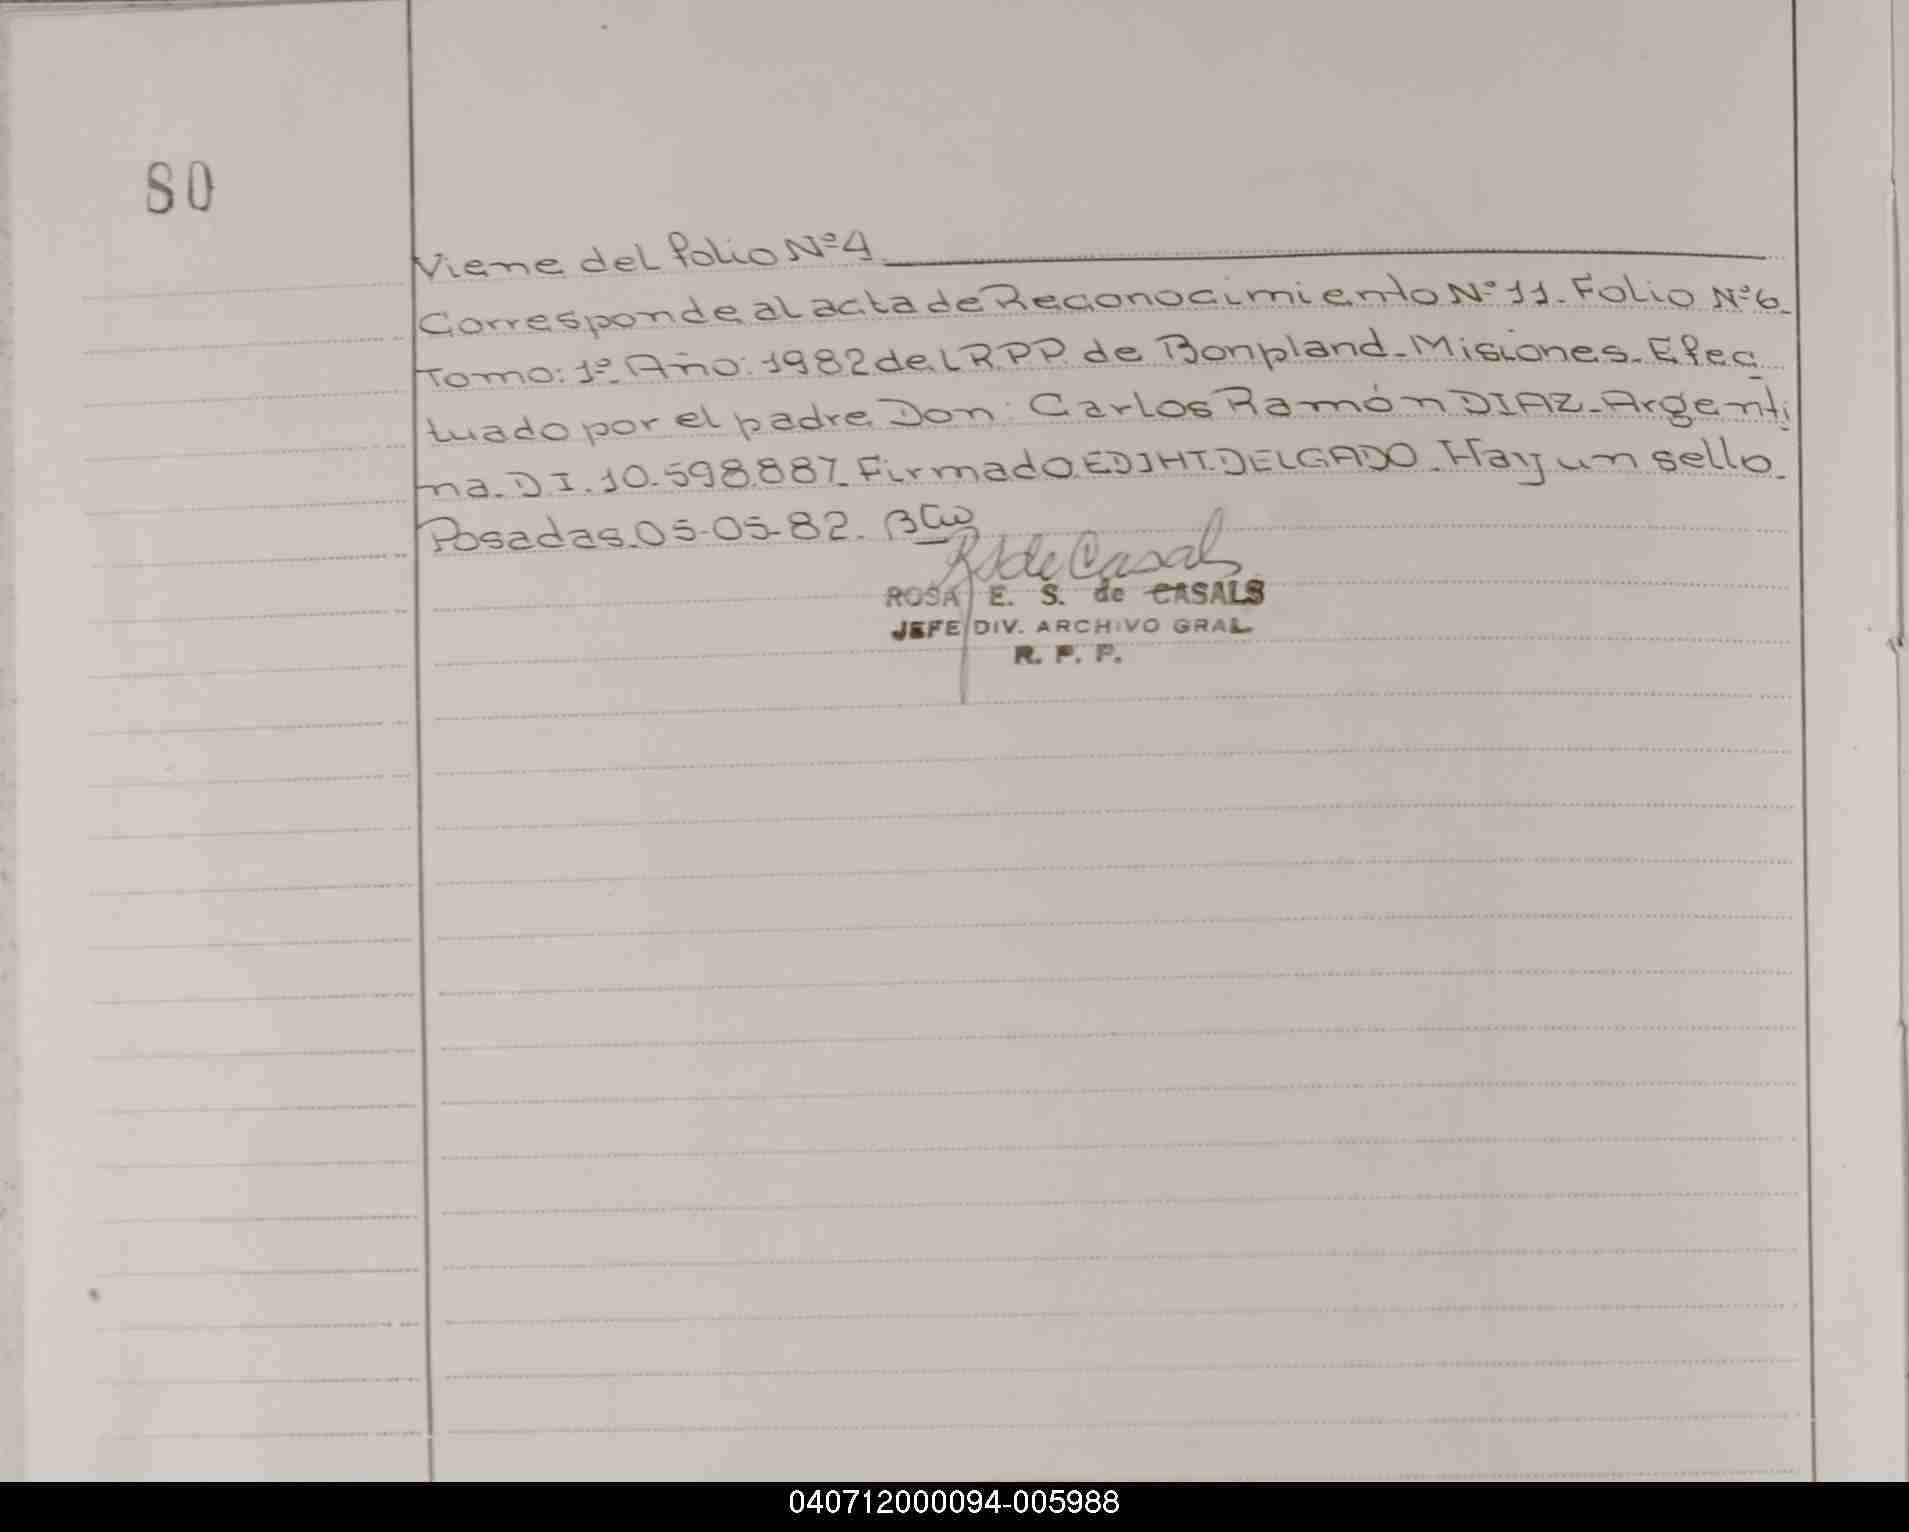 80
Viene del folio Nº 4
Corresponde al acta de Reconocimiento Nº 11. Folio Nº 6.
Tomo: 1º. Año: 1982 del R.P.P. de Bonpland - Misiones. Efec
tuado por el padre Don: Carlos Ramón DIAZ - Argenti
na. D.I. 10.598.887. Firmado EDIHT. DELGADO. Hay un sello.
Posadas. 05-05-82.
R S de Casals
ROSA E. S. de CASALS
JEFE DIV. ARCHIVO GRAL
R. P. P.
040712000094-005988